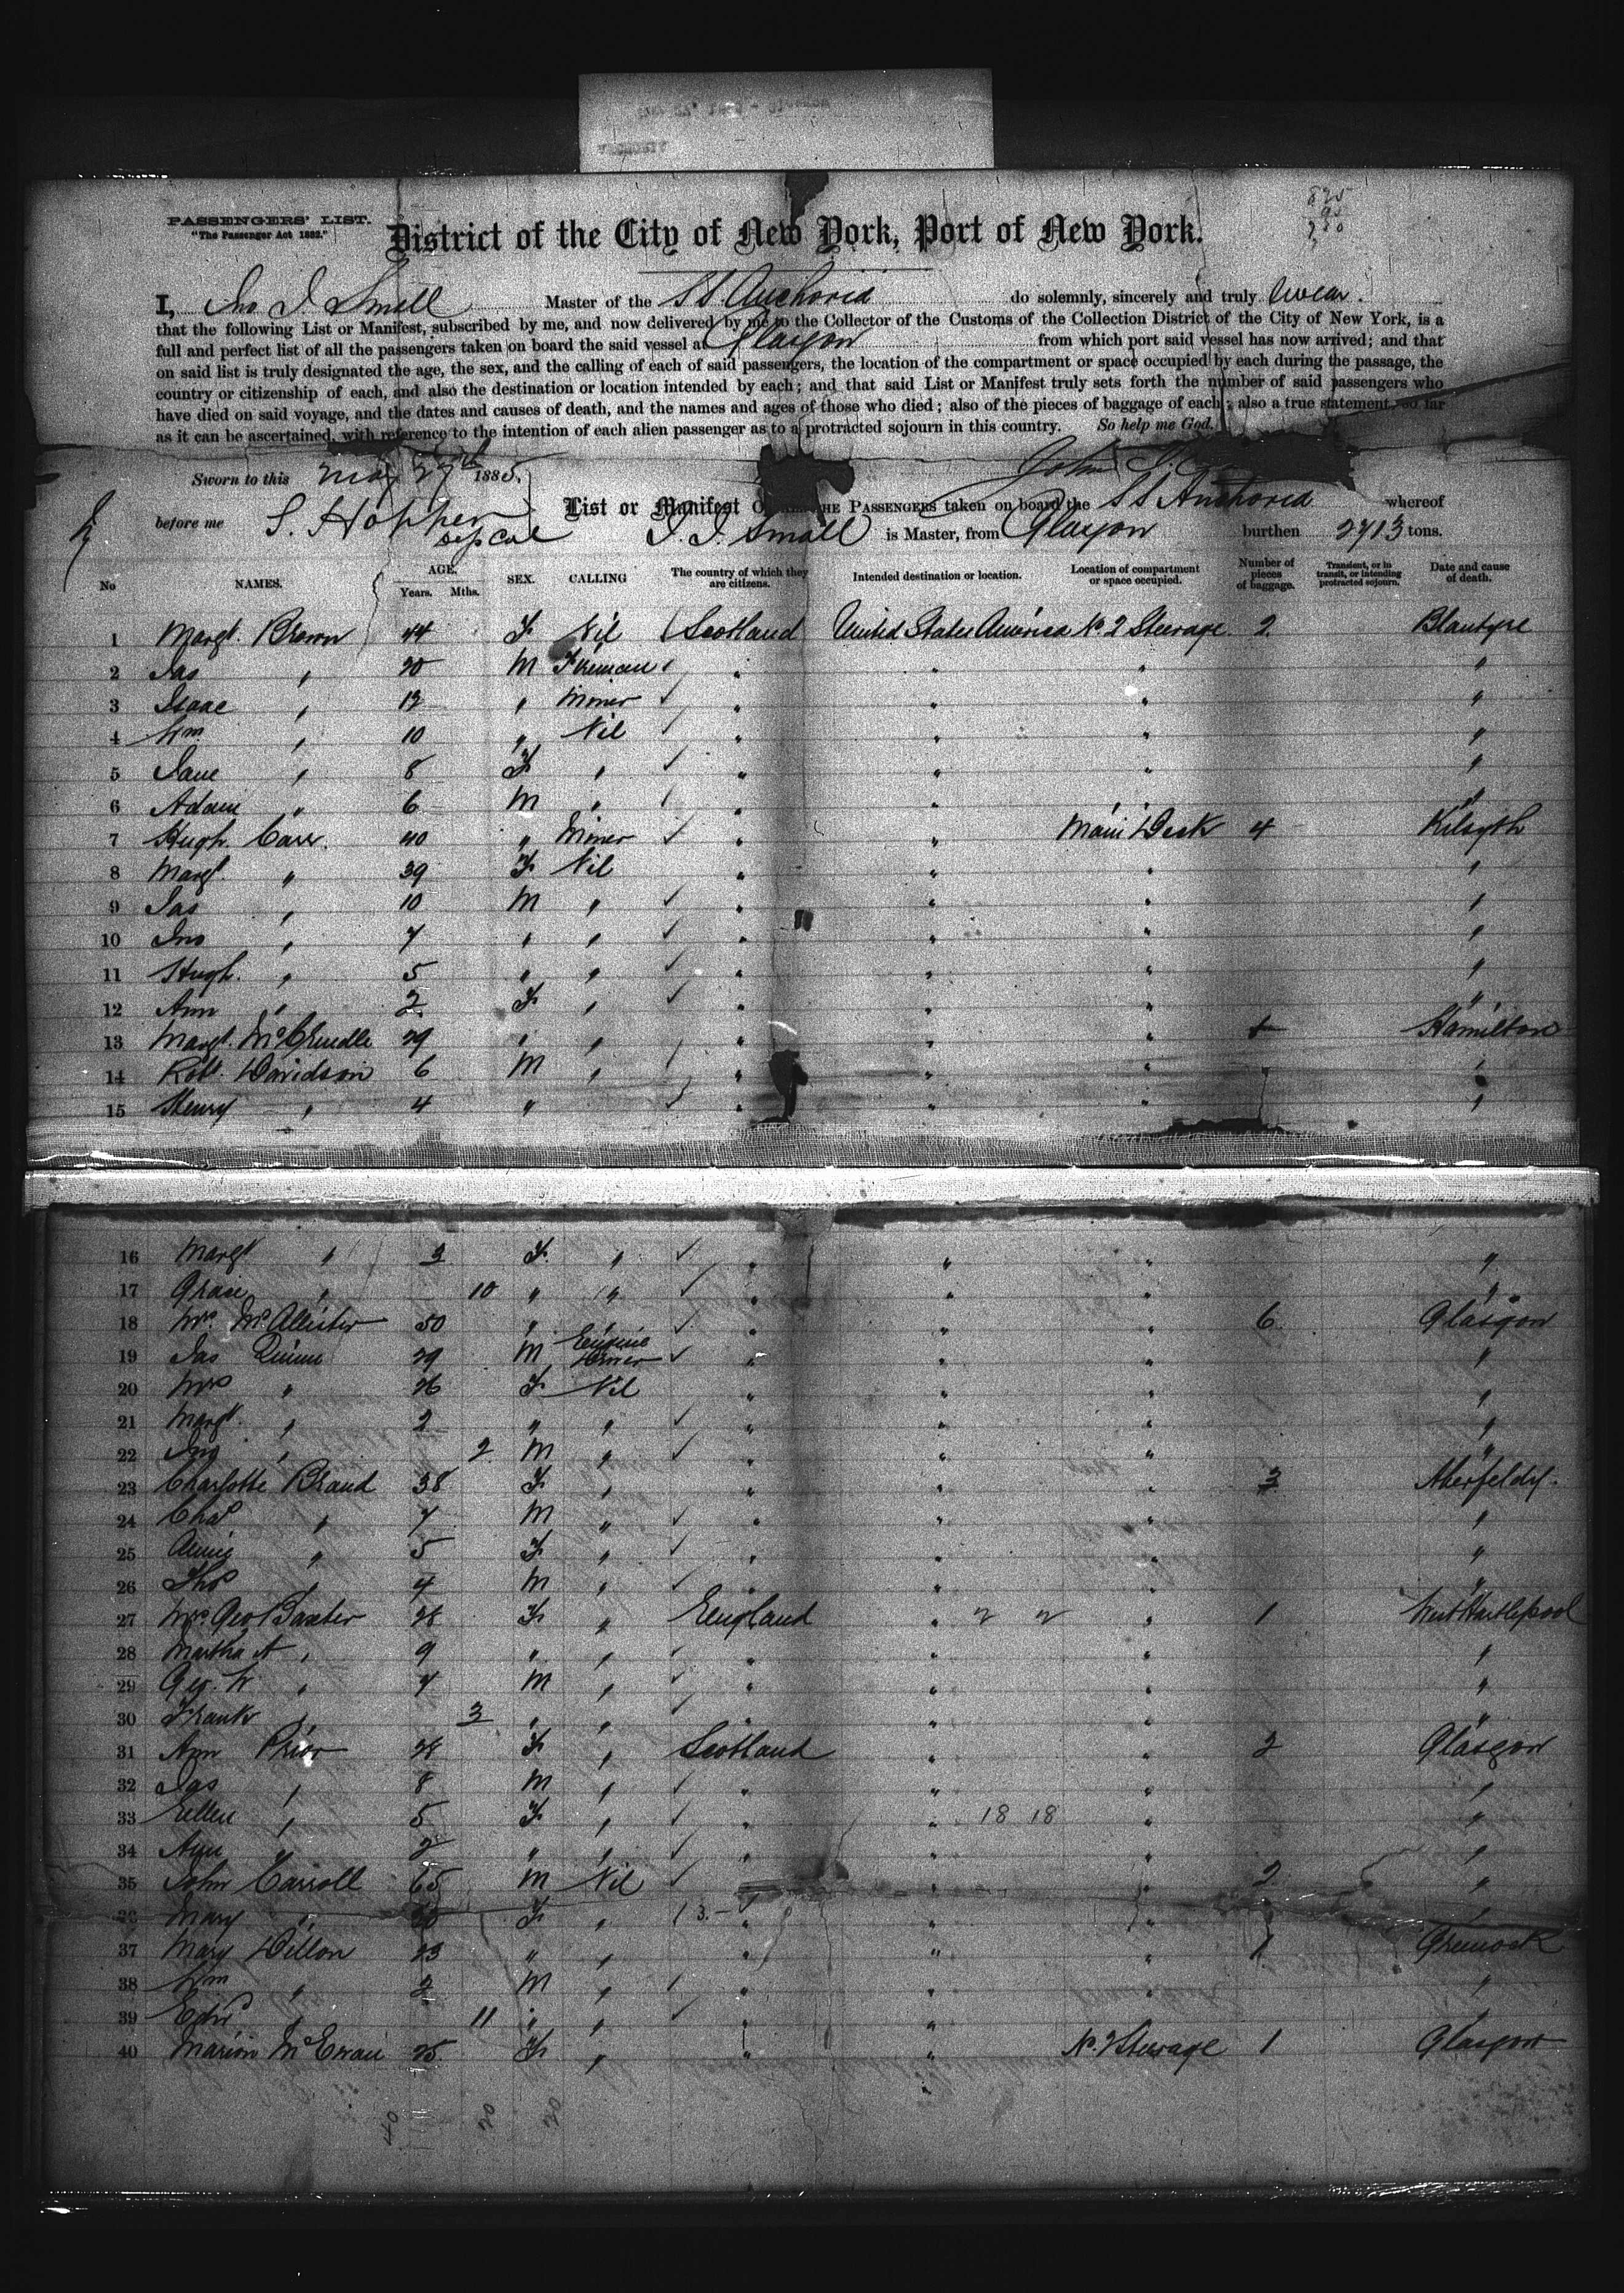 PASSENGERS' LIST.
"The Passenger Act 1882."
District of the City of New York, Port of New York.
I, Jno J. Small Master of the S.S. Anchoria do solemnly, sincerely and truly swear.
that the following List or Manifest, subscribed by me, and now delivered by me to the Collector of the Customs of the Collection District of the City of New York, is a
full and perfect list of all the passengers taken on board the said vessel at Glasgow from which port said vessel has now arrived; and that
on said list is truly designated the age, the sex, and the calling of each of said passengers, the location of the compartment or space occupied by each during the passage, the
country or citizenship of each, and also the destination or location intended by each; and that said List or Manifest truly sets forth the number of said passengers who
have died on said voyage, and the dates and causes of death, and the names and ages of those who died; also of the pieces of baggage of each; also a true statement, so far
as it can be ascertained, with reference to the intention of each alien passenger as to a protracted sojourn in this country. So help me God.
Sworn to this May 27th 1885. John
before me S. Hopper
List or Manifest THE PASSENGERS taken on board the SS Anchoria whereof
J. J. Small is Master, from Glasgow burthen 2713 tons.
No NAMES. AGE. Years. Mths. SEX. CALLING The country of which they are citizens. Intended destination or location. Location of compartment or space occupied. Number of pieces of baggage. Transient, or in transit, or intending protracted sojourn. Date and cause of death.
1 Margt. Brown 44 F Nil Scotland United States America No. 2 Steerage. 2. Blantyre
2 Jas " 20 M Fireman " " " "
3 Isaac " 12 " Miner ✓ " " " "
4 Wm " 10 " Nil ✓ " " " "
5 Jane " 8 F " ✓ " " " "
6 Adam " 6 M " " " " "
7 Hugh Carr. 40 " Miner ✓ " " Main Deck 4 Kilsyth
8 Margt. " 39 F Nil " " " "
9 Jas " 10 M " ✓ " " " "
10 Jno " 7 " " ✓ " " " "
11 Hugh. " 5 " " ✓ " " " "
12 Ann " 2 F " ✓ " " " "
13 Margt. McCrindle 29 " " " " " Hamilton
14 Robt. Davidson 6 M " " " " "
15 Henry " 4 " ✓ " " " "
16 Margt " 3 F. " ✓ " " " "
17 Grace " 10 " " ✓ " " " "
18 Mrs. McAllister 50 " " ✓ " " " 6. Glasgow
19 Jas Quinn 29 M Engine Driver ✓ " " " "
20 Mrs " 26 F Nil " " " "
21 Margt. " 2 " " ✓ " " " "
22 Jno " 2 M " ✓ " " " "
23 Charlotte Brand 38 F " " " " 3 Aberfeldy.
24 Chas " 7 M " ✓ " " " "
25 Annie " 5 F " ✓ " " " "
26 Thos " 4 M " ✓ " " " "
27 Mrs. Geo Baxter 28 F " England " 2 2 " 1 West Hartlepool
28 Martha A " 9 " " ✓ " " " "
29 Geo. W " 7 M " ✓ " " " "
30 Frank " 3 " " ✓ " " " "
31 Ann Prior 28 F " Scotland " " 2 Glasgow
32 Jas " 8 M " ✓ " " " "
33 Ellen " 5 F " ✓ " " 18 18 " "
34 Ann " 2 " " ✓ " " " "
35 John Carroll 65 M Nil ✓ " " " 2 "
36 Mary " F " 3.- " " " "
37 Mary Dillon 23 " " " " " 1 Greenock
38 Wm " 2 M " " " " "
39 Edwd " 11 " " ✓ " " "
40 Marion McEwan 25 F " " " No. 2 Steerage 1 Glasgow
40 20 20